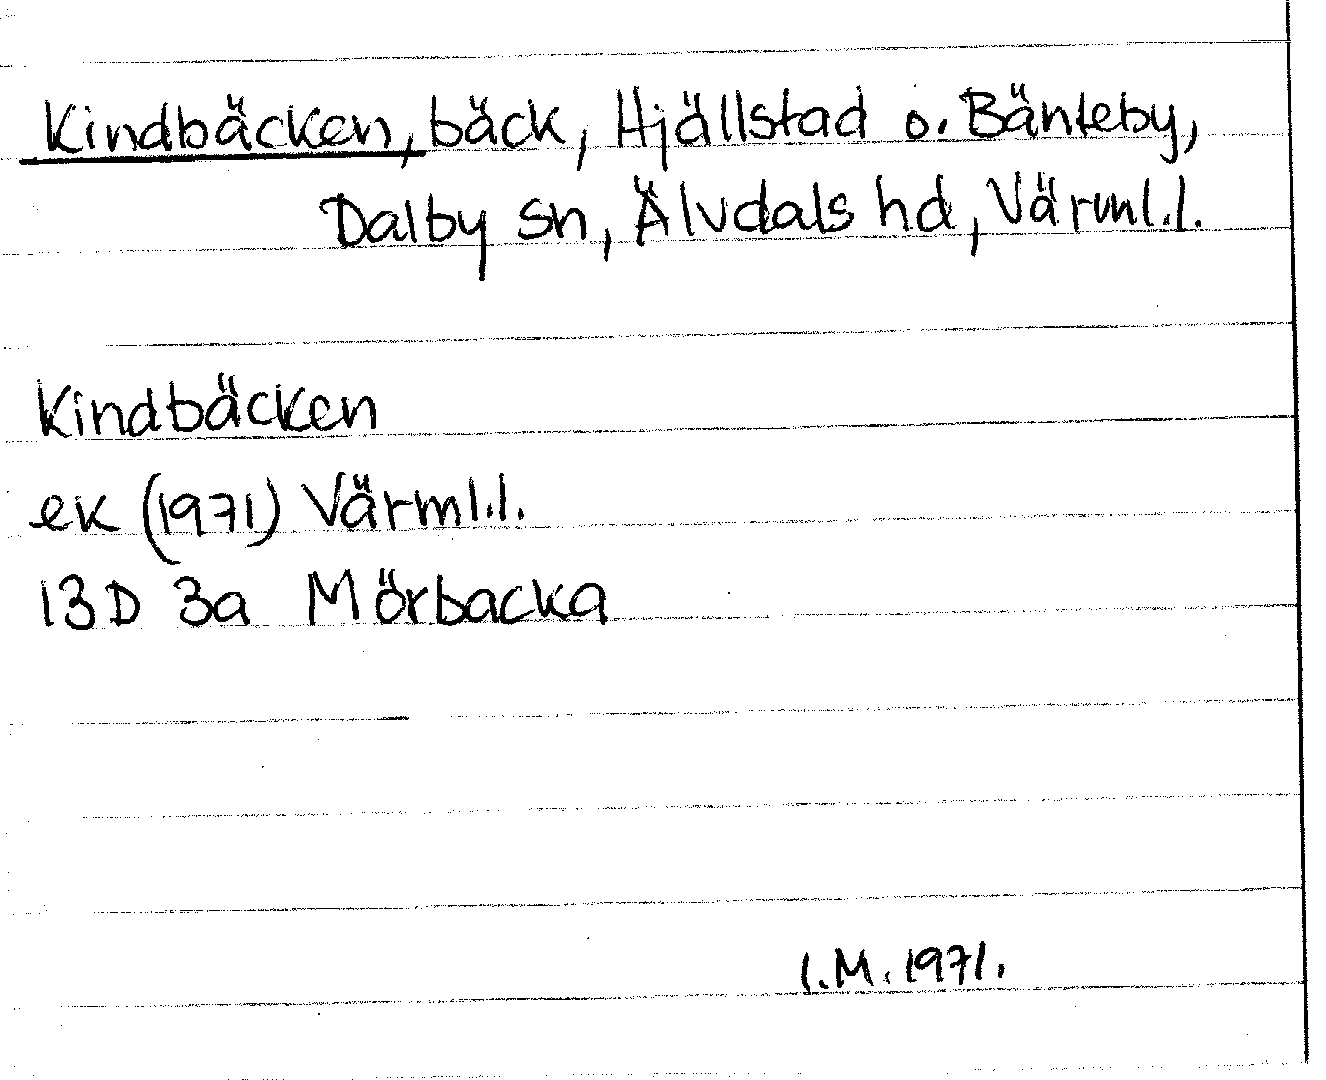 Kindbäcken, bäck, Hjällstad o. Bänteby,
Dalby sn, Älvdals hd, Värml.l.
Kindbäcken
ek (1971) Värml.l.
13D 3a Mörbacka
I.M. 1971.